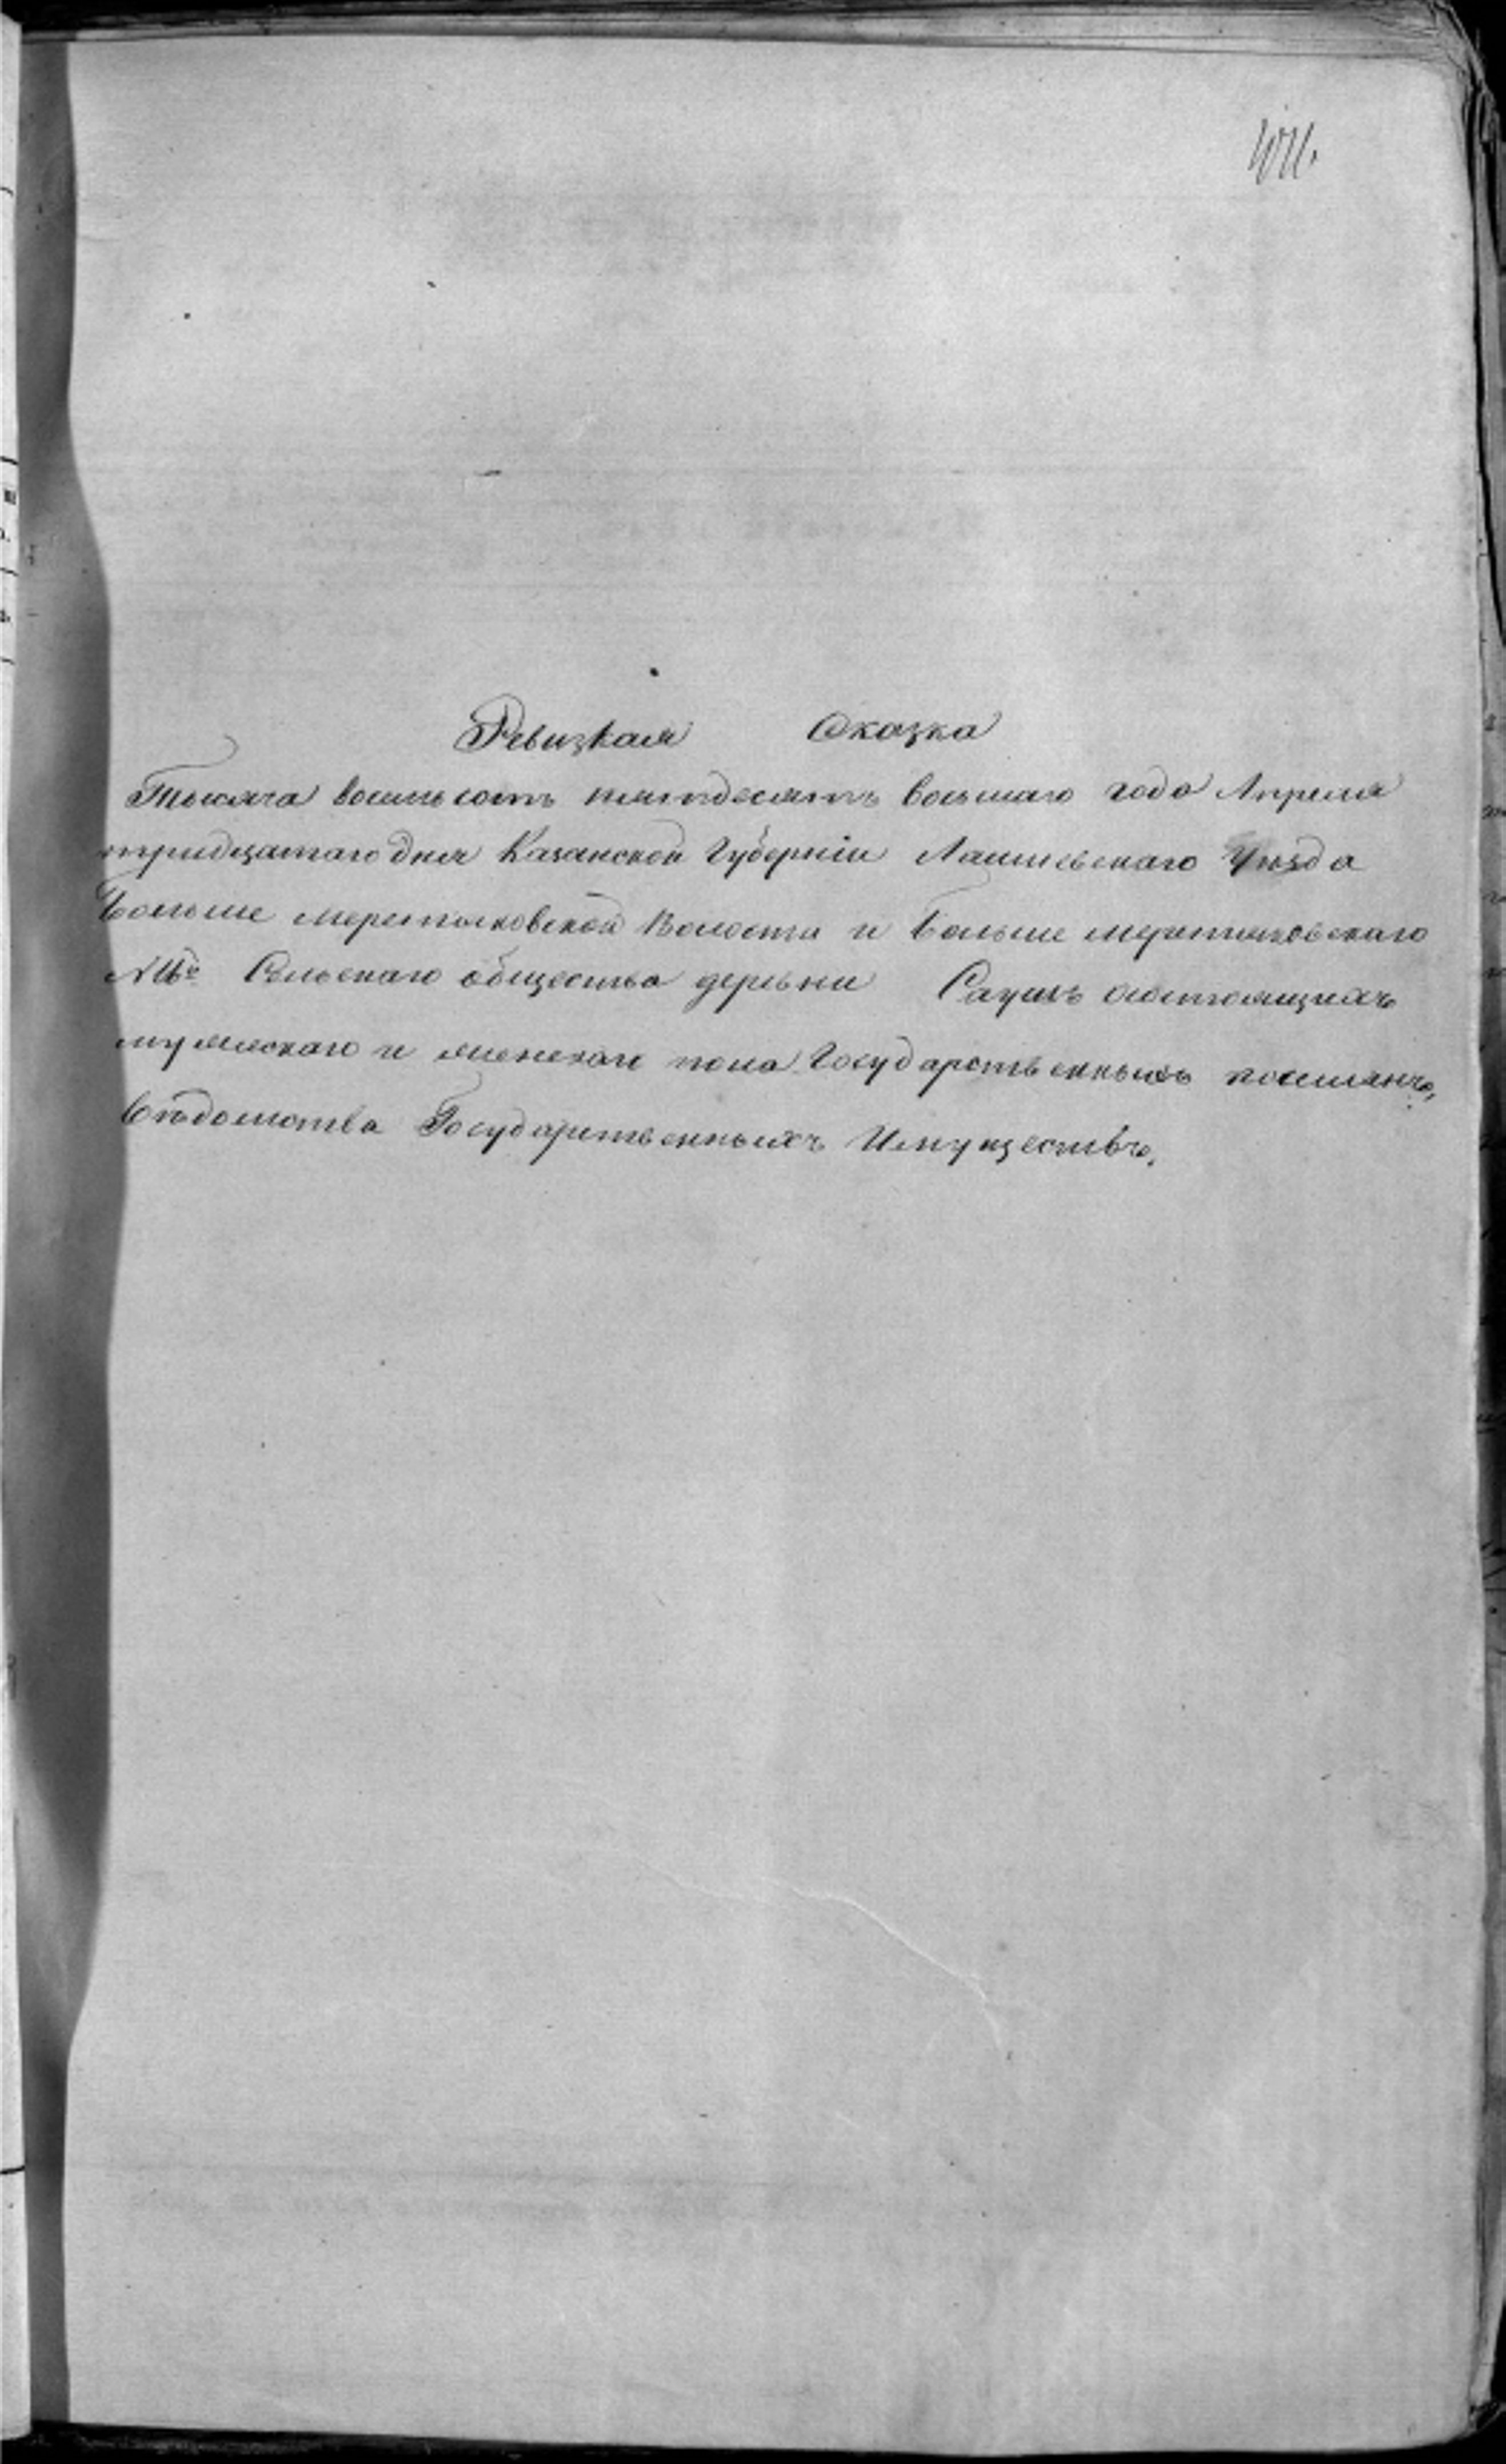 Ревизкая Сказка
Тысяча восемьсотъ пятдесятъ восьмаго года Апреля
тридцатаго дня Казанской Губерніи Лаишевскаго Уѣзда
Больше Меретяковской Волости и Больше Меретяковскаго
Сельскаго общества деревни Саушъ состоящихъ
мужескаго и женскаго пола Государственныхъ поселянъ,
Вѣдомства Государственныхъ Имуществъ.